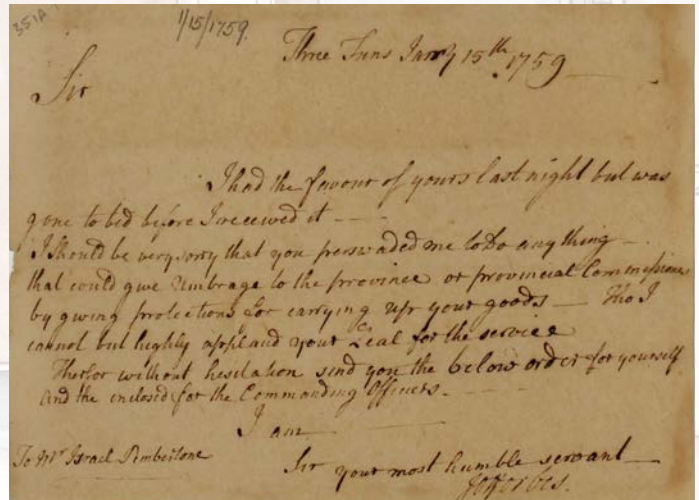 351A
1/15/1759.
Three Tuns Janry 15th 1759
Sir
I had the favour of yours last night but was
gone to bed before I received it
I should be very sorry that you perswaded me to Do any thing
that could give Umbrage to the province or provincial Commissions
by giving protections for carrying up your goods — Tho I
cannot but highly applaud your Zeal for the service
Therfor without hesitation send you the below order for yourself
and the enclosed for the Commanding Officers.
I am
Sir your most humble servant
To Mr Israel Pimbertone
Jo fforbes.